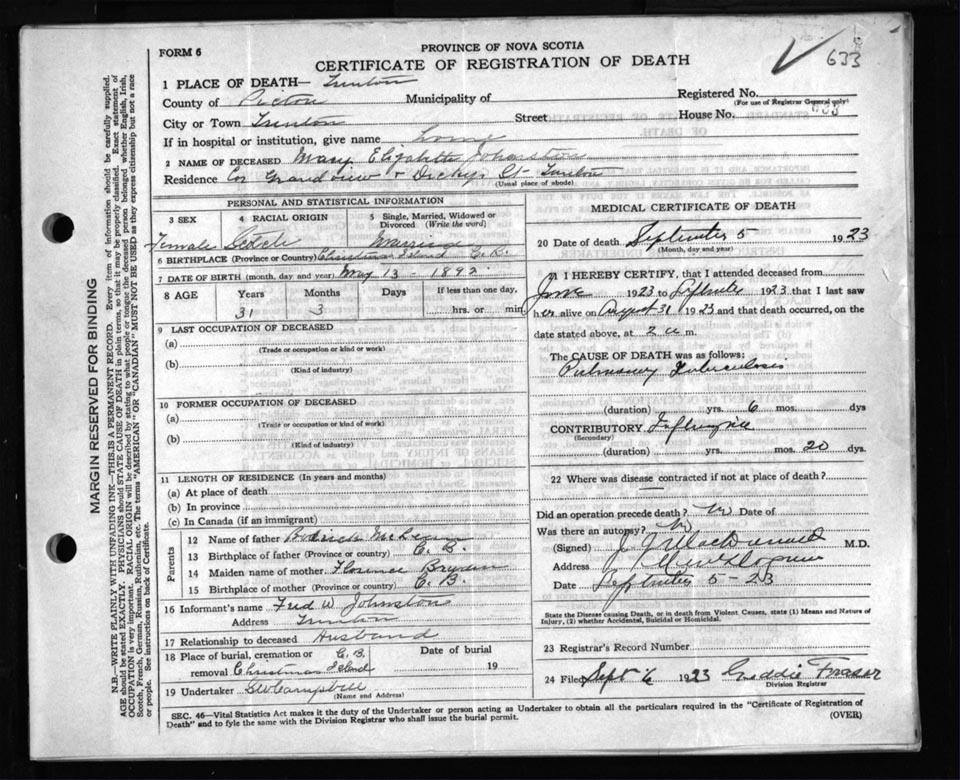 FORM 6
PROVINCE OF NOVA SCOTIA
CERTIFICATE OF REGISTRATION OF DEATH
633
1 PLACE OF DEATH— Trenton
County of Pictou Municipality of
Registered No.
(For use of Registrar General only)
City or Town Trenton Street House No.
If in hospital or institution, give name home
2 NAME OF DECEASED Mary Elizabeth Johnston
Residence Cor Grandview + Dickys St. Trenton
(Usual place of abode)
PERSONAL AND STATISTICAL INFORMATION
3 SEX 4 RACIAL ORIGIN 5 Single, Married, Widowed or Divorced (Write the word)
Female Scotch Married
6 BIRTHPLACE (Province or Country) Christmas Island C. B.
7 DATE OF BIRTH (month, day and year) May 13 - 1892
8 AGE Years Months Days If less than one day,
31 3 hrs. or min
9 LAST OCCUPATION OF DECEASED
(a)
(Trade or occupation or kind or work)
(b)
(Kind of industry)
10 FORMER OCCUPATION OF DECEASED
(a)
(Trade or occupation or kind of work)
(b)
(Kind of industry)
11 LENGTH OF RESIDENCE (In years and months)
(a) At place of death
(b) In province
(c) In Canada (if an immigrant)
Parents
12 Name of father Rodrick McLean
13 Birthplace of father (Province or country) C. B.
14 Maiden name of mother Florence Bryden
15 Birthplace of mother (Province or country) C. B.
16 Informant's name Fred W. Johnston
Address Trenton
17 Relationship to deceased Husband
18 Place of burial, cremation or removal C. B. Christmas Island Date of burial 19
19 Undertaker Campbell
(Name and Address)
MEDICAL CERTIFICATE OF DEATH
20 Date of death September 5 1923
(Month, day and year)
21 I HEREBY CERTIFY, that I attended deceased from
June 1923 to September 1923 that I last saw
her alive on August 31 1923 and that death occurred, on the
date stated above, at 2 a m.
The CAUSE OF DEATH was as follows:
Pulmonary Tuberculosis
(duration) yrs. 6 mos. dys
CONTRIBUTORY
(Secondary)
(duration) yrs. mos. 20 dys
22 Where was disease contracted if not at place of death?
Did an operation precede death? No Date of
Was there an autopsy? No
(Signed) MacDonald M.D.
Address New Glasgow
Date September 5 - 23
State the Disease causing Death, or in death from Violent Causes, state (1) Means and Nature of
Injury, (2) whether Accidental, Suicidal or Homicidal.
23 Registrar's Record Number
24 Filed Sept 6 1923 Fraser
Division Registrar
SEC. 46—Vital Statistics Act makes it the duty of the Undertaker or person acting as Undertaker to obtain all the particulars required in the "Certificate of Registration of
Death" and to fyle the same with the Division Registrar who shall issue the burial permit.
(OVER)
MARGIN RESERVED FOR BINDING
N.B.—WRITE PLAINLY WITH UNFADING INK—THIS IS A PERMANENT RECORD. Every item of information should be carefully supplied.
AGE should be stated EXACTLY. PHYSICIANS should STATE CAUSE OF DEATH in plain terms, so that it may be properly classified. Exact statement of
OCCUPATION is very important. RACIAL ORIGIN will be described by stating to what people or tongue the deceased person belonged whether English, Irish,
Scotch, French, German, Russian, Ruthenian, etc. The terms "AMERICAN" OR "CANADIAN" MUST NOT BE USED as they express citizenship but not a race
or people. See instructions on back of Certificate.